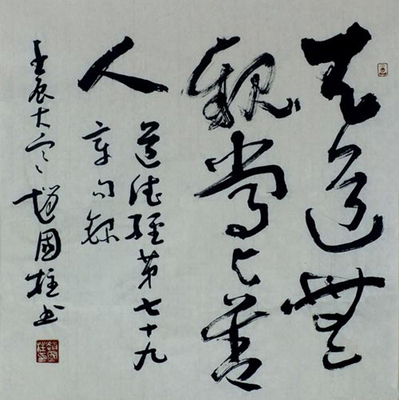 天道無
親常与善
人
道德経第七十九
章句錄
壬辰大寒趙國柱书